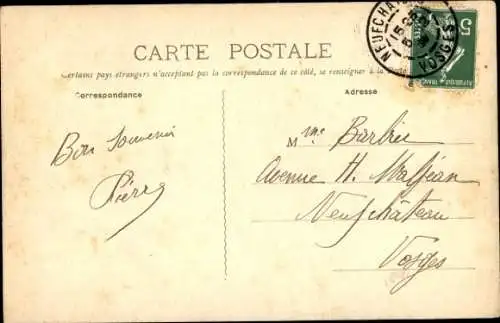 NEUFCHATEAU
VOSGES
5
CARTE POSTALE
Certains pays étrangers n'acceptant pas la correspondance de ce côté, se renseigner à la
Correspondance
Adresse
Bon Souvenir
Pierre
Mme Barbier
Avenue H. Masjean
Neufchâteau
Vosges